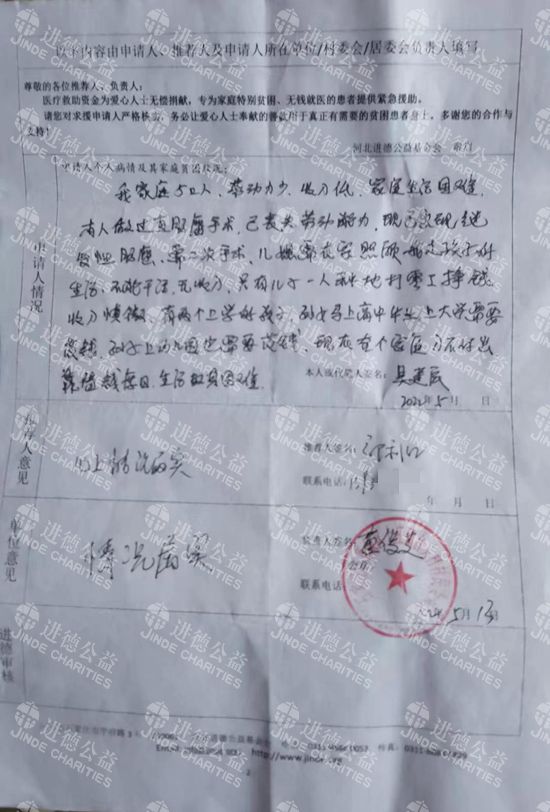 以下内容由申请人、推荐人及申请人所在单位/村委会/居委会负责人填写
尊敬的各位推荐人、负责人：
医疗救助资金为爱心人士无偿捐献，专为家庭特别贫困、无钱就医的患者提供紧急援助。
请您对求援申请人严格核实，务必让爱心人士奉献的善款用于真正有需要的贫困患者身上。多谢您的合作与
支持！
河北进德公益基金会 敬启
申请人情况
申请人个人病情及其家庭贫困状况：
我家庭5口人，劳动力少，收入低，家庭生活困难
本人做过直肠癌手术，已丧失劳动能力，现已发现继
发性肠癌，第二次手术，儿媳常在家照顾我和孩子的
生活，不能干活，无收入，只有儿子一人种地打零工挣钱
收入微薄，有两个上学的孩子，孙女马上高中毕业上大学需要
花钱，孙子上幼儿园也需要花钱，现在整个家庭
靠借钱度日，生活极其困难
本人或代理人签名：
2022年5月 日
推荐人意见
以上情况属实
推荐人签名：
联系电话：
年 月 日
单位意见
情况属实
负责人签名：
公章
联系电话：
5月13日
进德审核
http://www.jinde.org
2
进德公益
JINDE CHARITIES